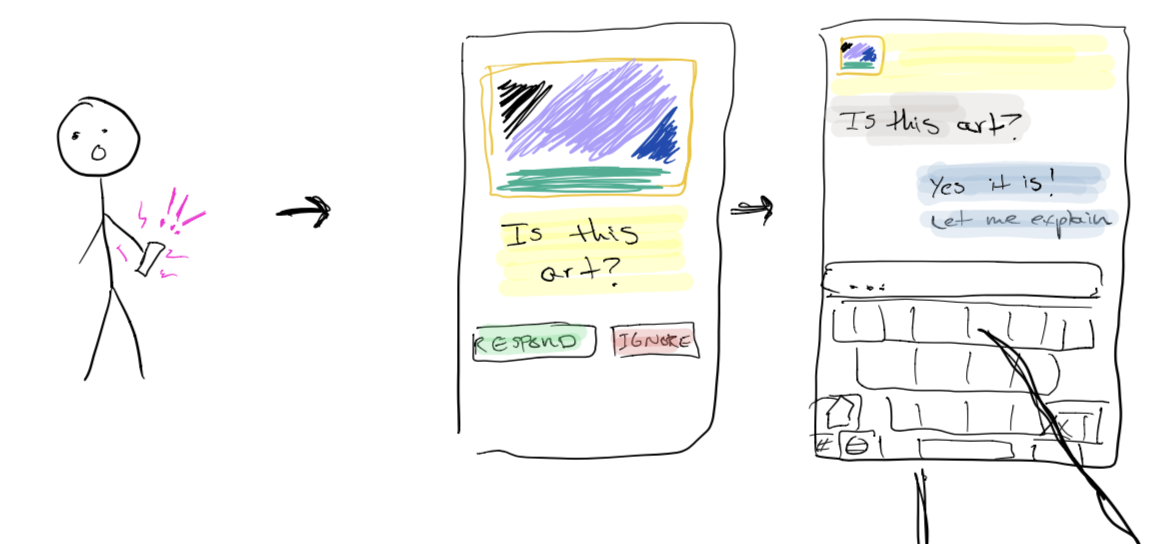 Is this
art?
RESPOND
IGNORE
Is this art?
Yes it is!
Let me explain
...
#